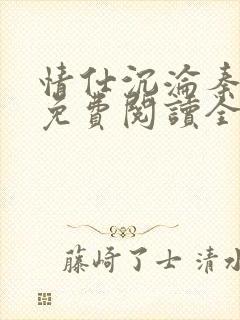 情仕沉淪秦
免費閱讀全
藤崎了士 清水